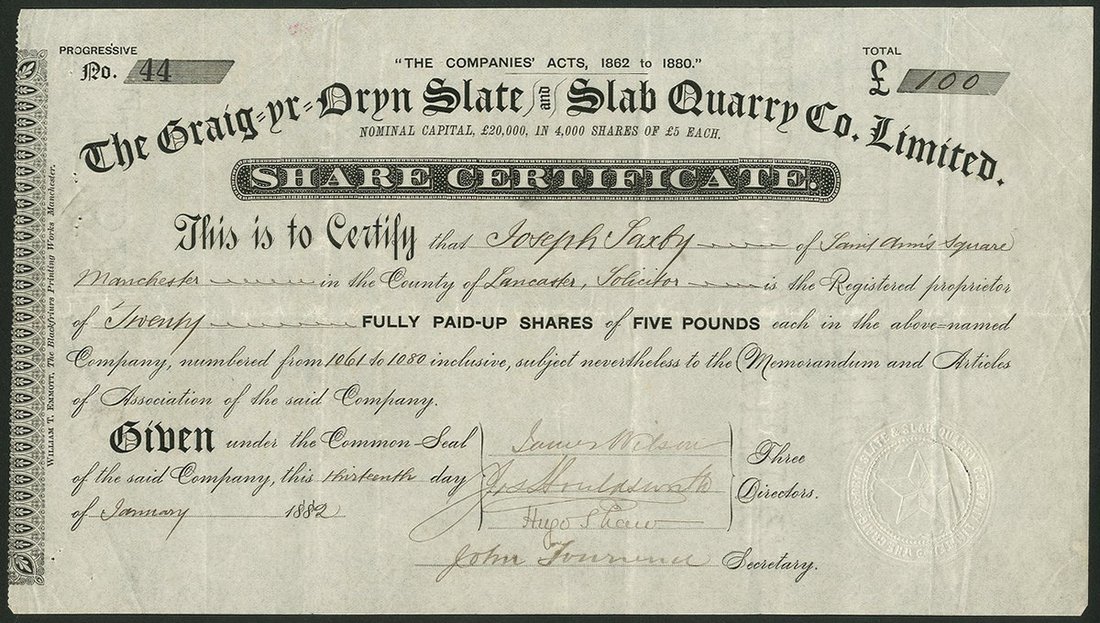 PROGRESSIVE
No. 44
TOTAL
£ 100
"THE COMPANIES' ACTS, 1862 to 1880."
The Graig-yr-Dryn Slate and Slab Quarry Co. Limited.
NOMINAL CAPITAL, £20,000, IN 4,000 SHARES OF £5 EACH.
SHARE CERTIFICATE.
This is to Certify that Joseph Saxby of Saint Ann's Square
Manchester in the County of Lancaster, Solicitor is the Registered proprietor
of Twenty FULLY PAID-UP SHARES of FIVE POUNDS each in the above-named
Company, numbered from 1061 to 1080 inclusive, subject nevertheless to the Memorandum and Articles
of Association of the said Company.
Given under the Common-Seal
of the said Company, this thirteenth day
of January 1882
James Wilson
Jos Houldsworth
Hugo Shaw
Three
Directors.
John Townend Secretary.
WILLIAM T. EMMOTT, The Blackfriars Printing Works Manchester.
SLATE & SLAB QUARRY COMPANY